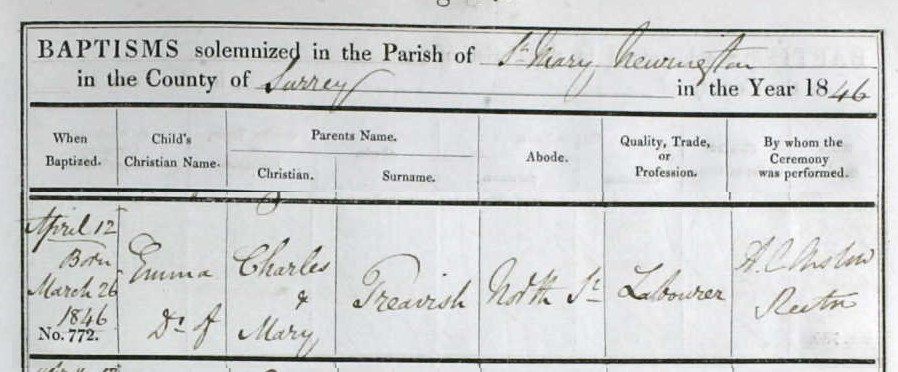 BAPTISMS solemnized in the Parish of St Mary Newington
in the County of Surrey in the Year 1846
When Baptized.
Child's Christian Name.
Parents Name.
Christian.
Surname.
Abode.
Quality, Trade, or Profession.
By whom the Ceremony was performed.
April 12
Born
March 26
1846
No. 772.
Emma
Dr of
Charles
&
Mary
Treavish
North St
Labourer
A. C. Onslow
Rector